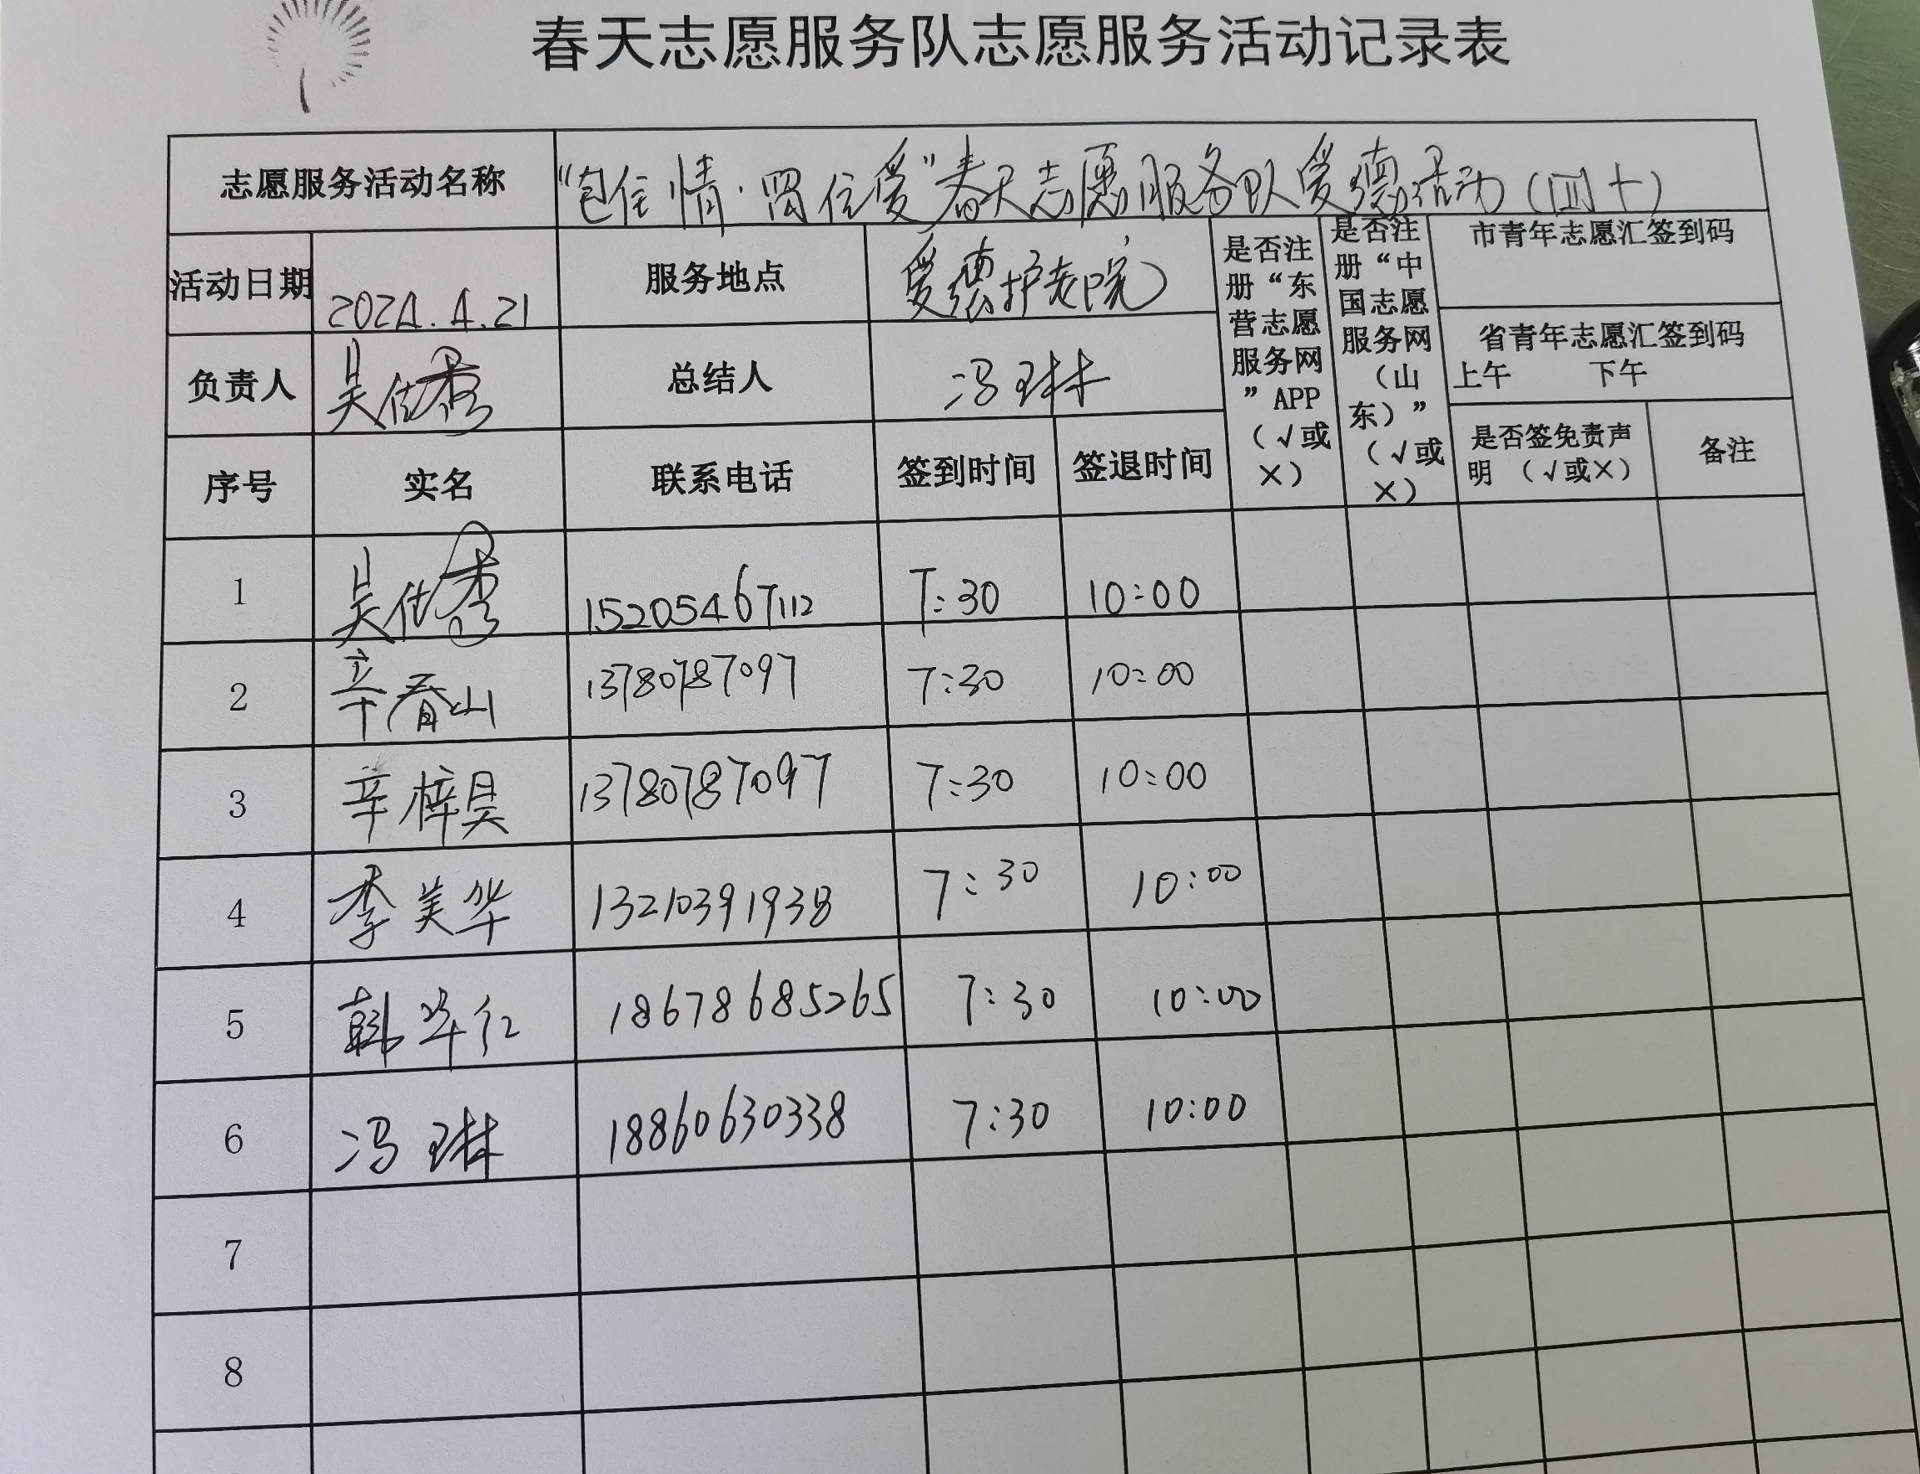 春天志愿服务队志愿服务活动记录表
志愿服务活动名称 “包住情·留住爱”春天志愿服务队爱德活动（四十）
活动日期 2024.4.21 服务地点 爱德护老院
负责人 吴仕秀 总结人 冯琳
是否注册“东营志愿服务网”APP（√或×）
是否注册“中国志愿服务网（山东）”（√或×）
市青年志愿汇签到码
省青年志愿汇签到码
上午 下午
序号 实名 联系电话 签到时间 签退时间 是否签免责声明（√或×） 备注
1 吴仕秀 15205467112 7:30 10:00
2 辛春山 13780787097 7:30 10:00
3 辛梓昊 13780787097 7:30 10:00
4 李美华 13210391938 7:30 10:00
5 韩华红 18678685265 7:30 10:00
6 冯琳 18860630338 7:30 10:00
7
8